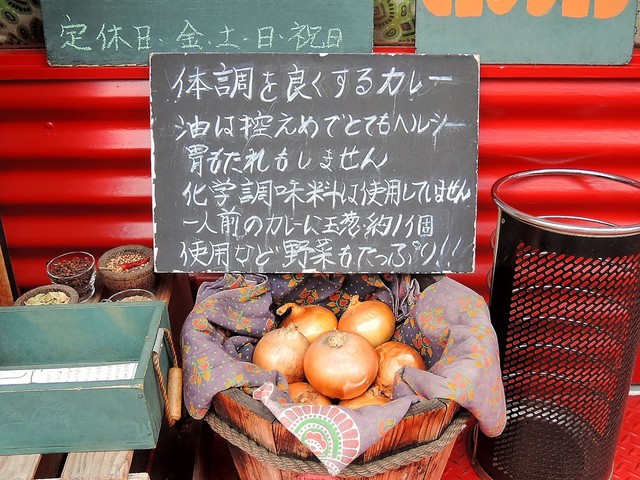 定休日・金・土・日・祝日
CLOSED
体調を良くするカレー
油は控えめでとてもヘルシー
胃もたれもしません
化学調味料は使用していません
一人前のカレーに玉葱・約1個
使用など野菜もたっぷり!!